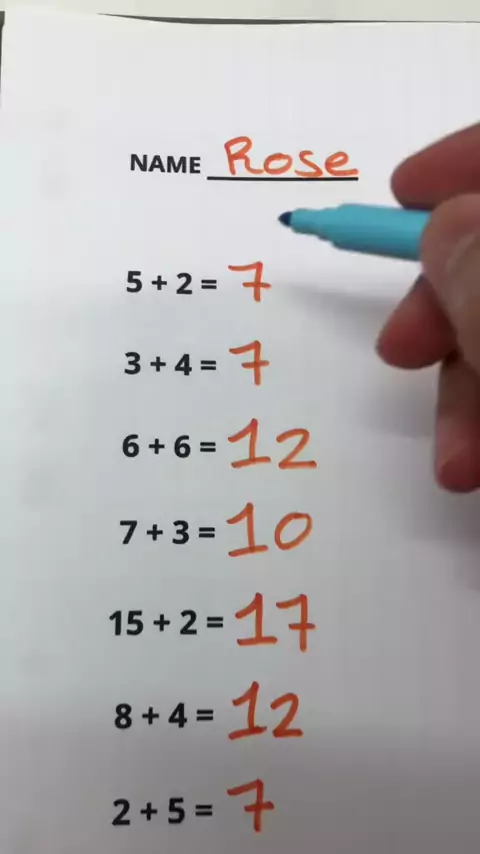 NAME Rose
5 + 2 = 7
3 + 4 = 7
6 + 6 = 12
7 + 3 = 10
15 + 2 = 17
8 + 4 = 12
2 + 5 = 7